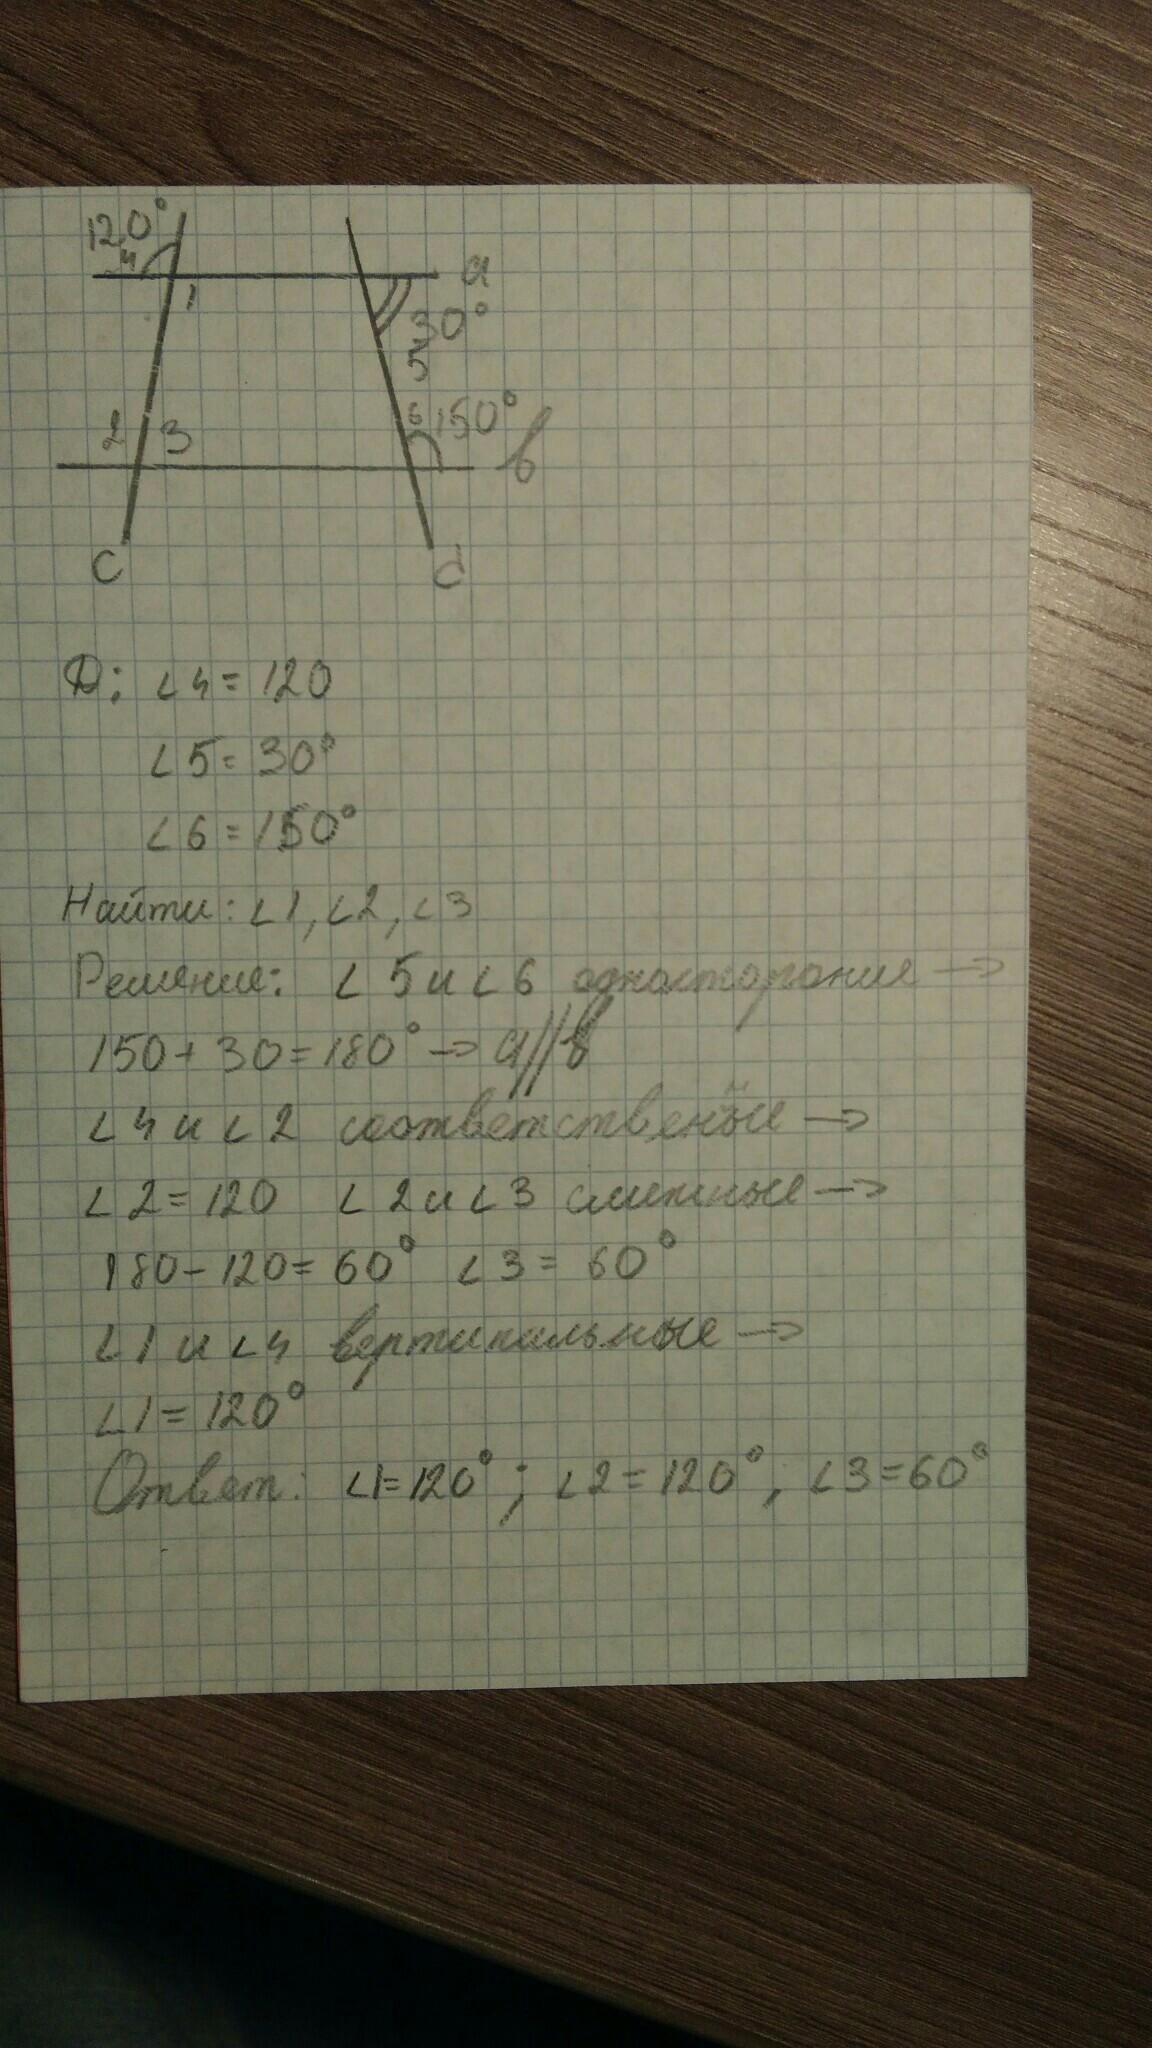 120°
4
a
1
30°
5
2
3
6
150°
b
c
d
D: ∠4 = 120
∠5 = 30°
∠6 = 150°
Найти: ∠1, ∠2, ∠3
Решение: ∠5 и ∠6 односторание →
150 + 30 = 180° → a//b
∠4 и ∠2 соответственые →
∠2 = 120 ∠2 и ∠3 смежные →
180 - 120 = 60° ∠3 = 60°
∠1 и ∠4 вертикальные →
∠1 = 120°
Ответ: ∠1 = 120°; ∠2 = 120°, ∠3 = 60°